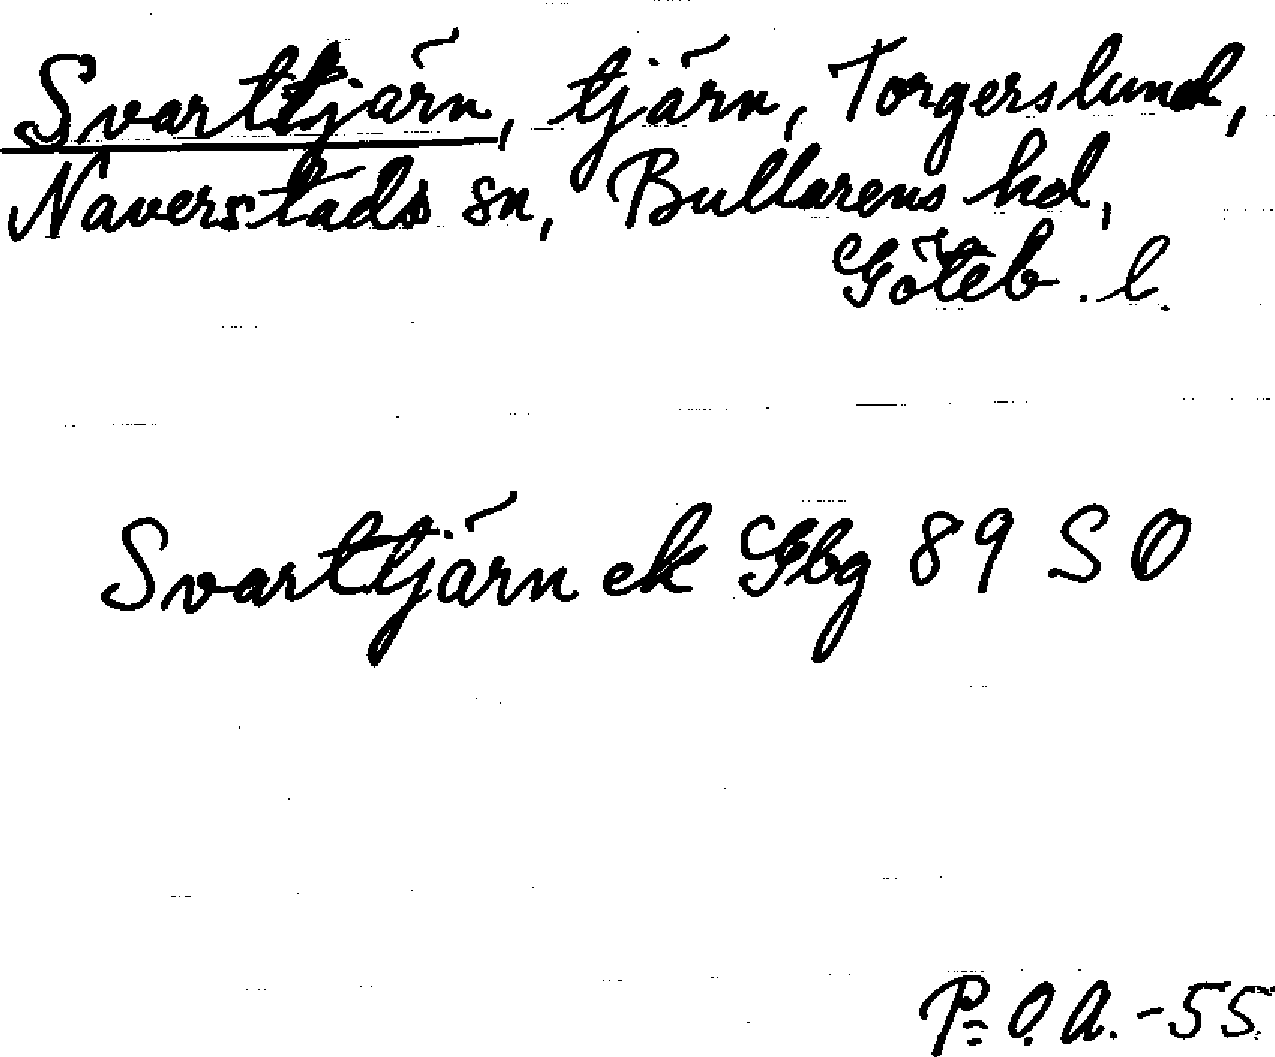 Svarttjärn, tjärn, Torgerslund,
Naverstads sn, Bullarens hd,
Göteb. l.
Svarttjärn ek Gbg 89 SO
P.O.A.-55